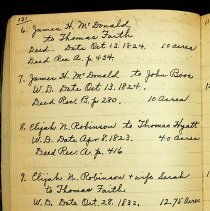 131
6. James H. McDonald
to Thomas Faith
Deed. Date Oct. 13. 1824. 10 acres
Deed Rec. A. p. 434.
7. James H. McDonald to John Boon
W.D. Date Oct. 13. 1824.
Deed Rec. B. p. 280. 10 acres
8. Elijah N. Robinson to Thomas Hyatt
W.D. Date Apr. 8. 1823. 40 acres
Deed Rec. A. p. 416
9. Elijah N. Robinson + wife Sarah
to Thomas Faith.
W.D. Date Oct. 28. 1832. 12.75 acres